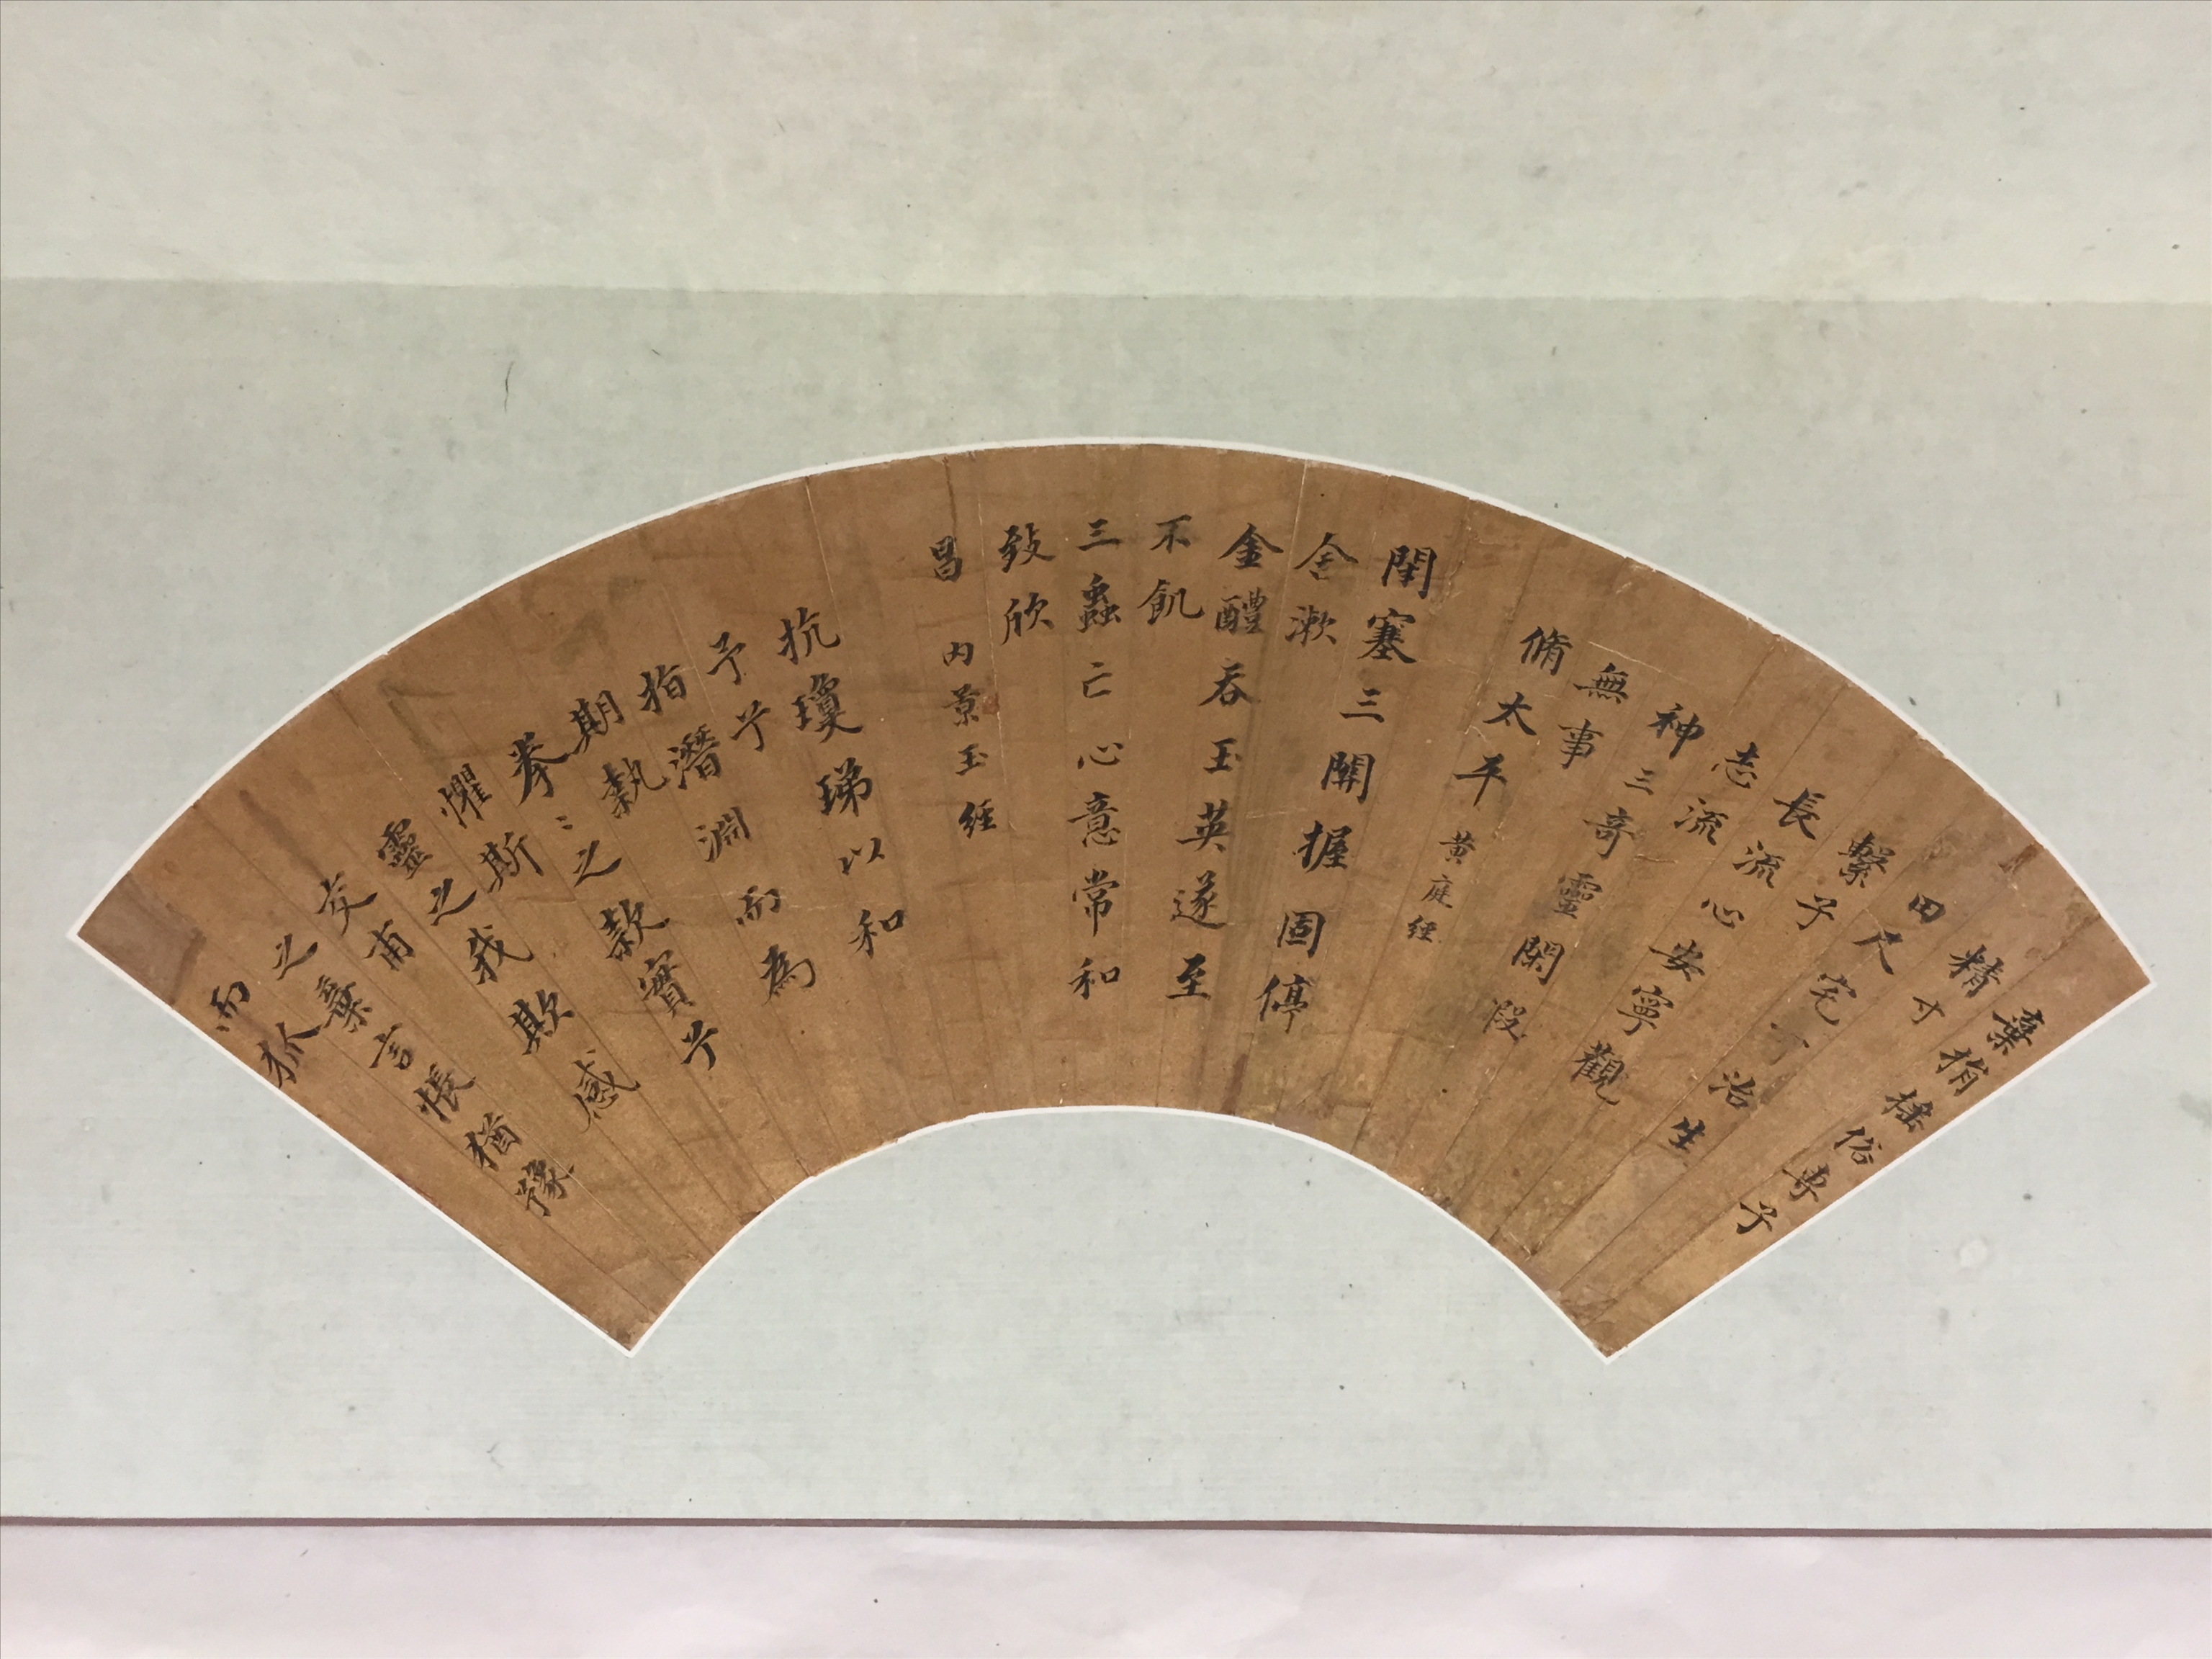 棄捐搖俗專子
精寸
田尺宅可治生
繫子
長流心安寧觀
志流
神三奇靈閑暇
無事
脩太平 黄庭經
閉塞三關握固停
含漱
金醴吞玉英遂至
不飢
三蟲亡心意常和
致欣
昌 內景玉經
抗瓊珶以和
予兮
指潛淵而為
期執
拳〻之款實兮
懼斯
靈之我欺感
交甫
之棄言悵猶豫
而狐